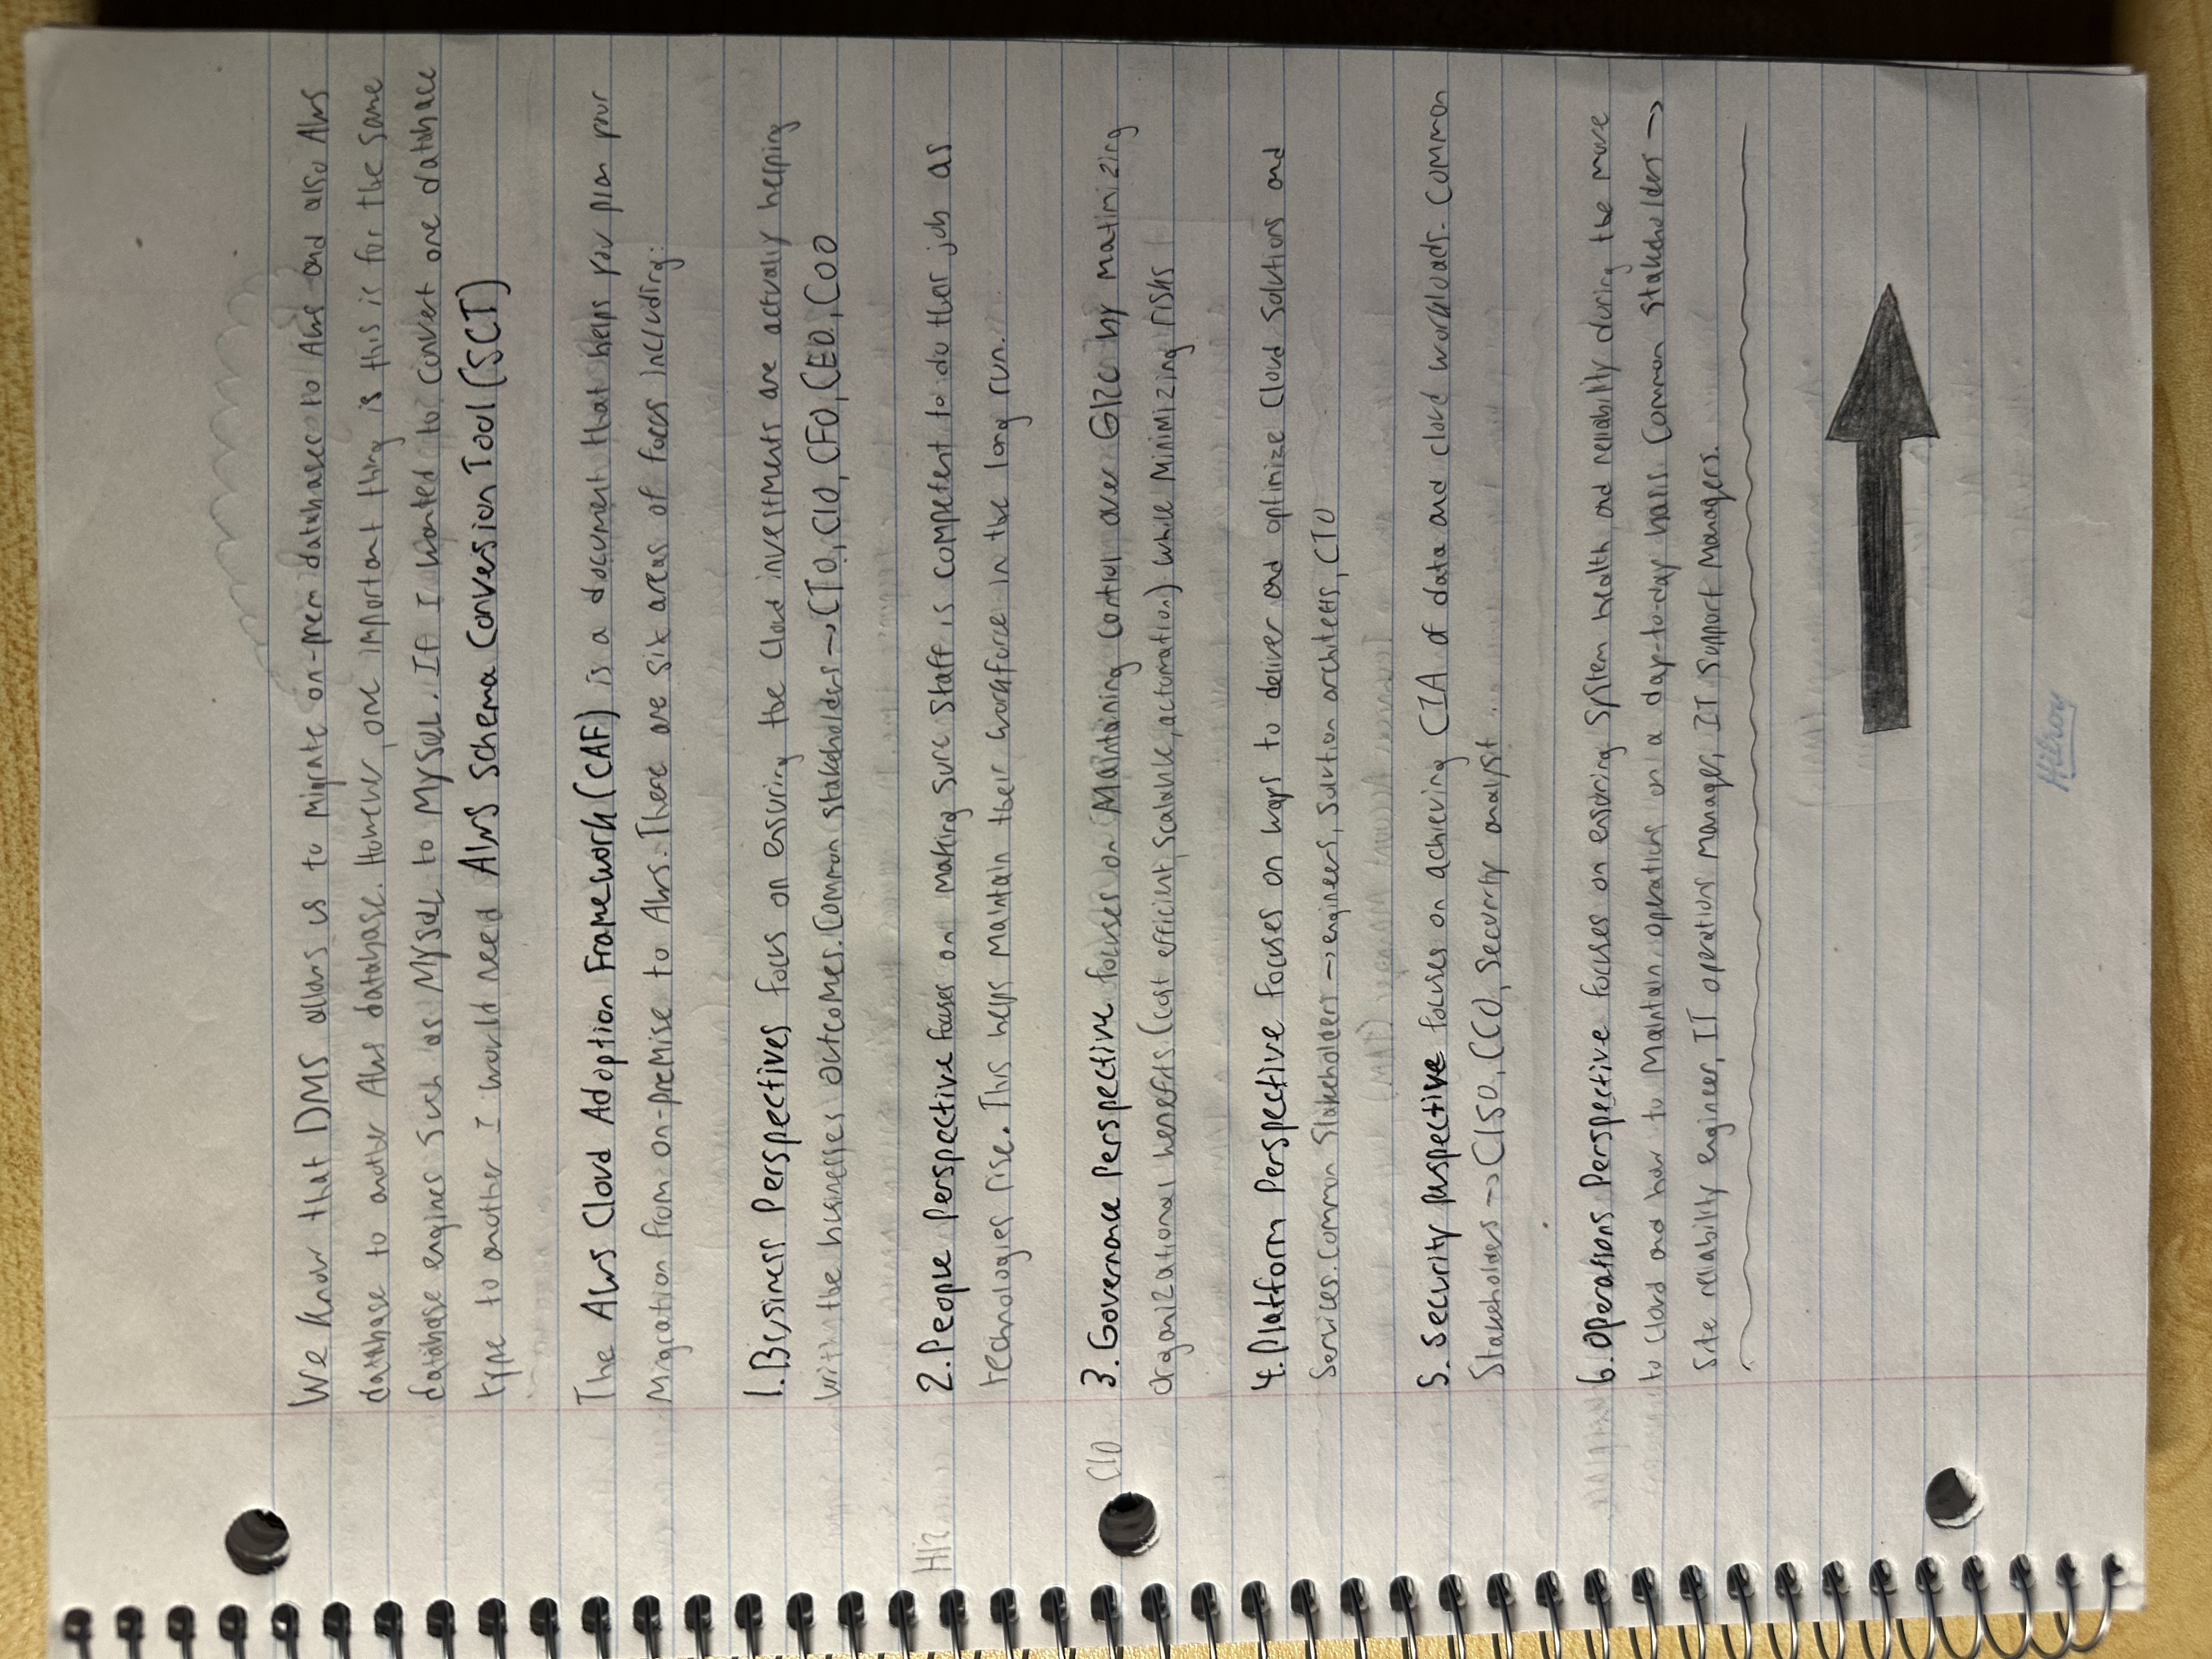 We know that DMS allows us to migrate on-prem databases to AWS and also AWS
database to another AWS database. However, one important thing is this is for the same
database engines such as MySQL to MySQL. If I wanted to convert one database
type to another I would need AWS Schema Conversion Tool (SCT)
The AWS Cloud Adoption Framework (CAF) is a document that helps you plan your
migration from on-premise to AWS. There are six areas of focus including:
1. Business Perspectives focus on ensuring the cloud investments are actually helping
with the businesses outcomes. Common stakeholders → CTO, CIO, CFO, CEO, COO
HR 2. People Perspective focuses on making sure staff is competent to do their job as
technologies rise. This helps maintain their workforce in the long run.
CIO 3. Governance Perspective focuses on Maintaining control over GRC by maximizing
organizational benefits (cost efficient, scalable, automation) while minimizing risks
4. Platform Perspective focuses on ways to deliver and optimize cloud solutions and
services. Common Stakeholders → engineers, solution architects, CTO
5. Security perspective focuses on achieving CIA of data and cloud workloads. Common
Stakeholders → CISO, CCO, Security analyst
6. Operations Perspective focuses on ensuring system health and reliability during the move
to cloud and how to maintain operations on a day-to-day basis. Common Stakeholders →
Site reliability engineer, IT operations manager, IT support managers.
Hilroy